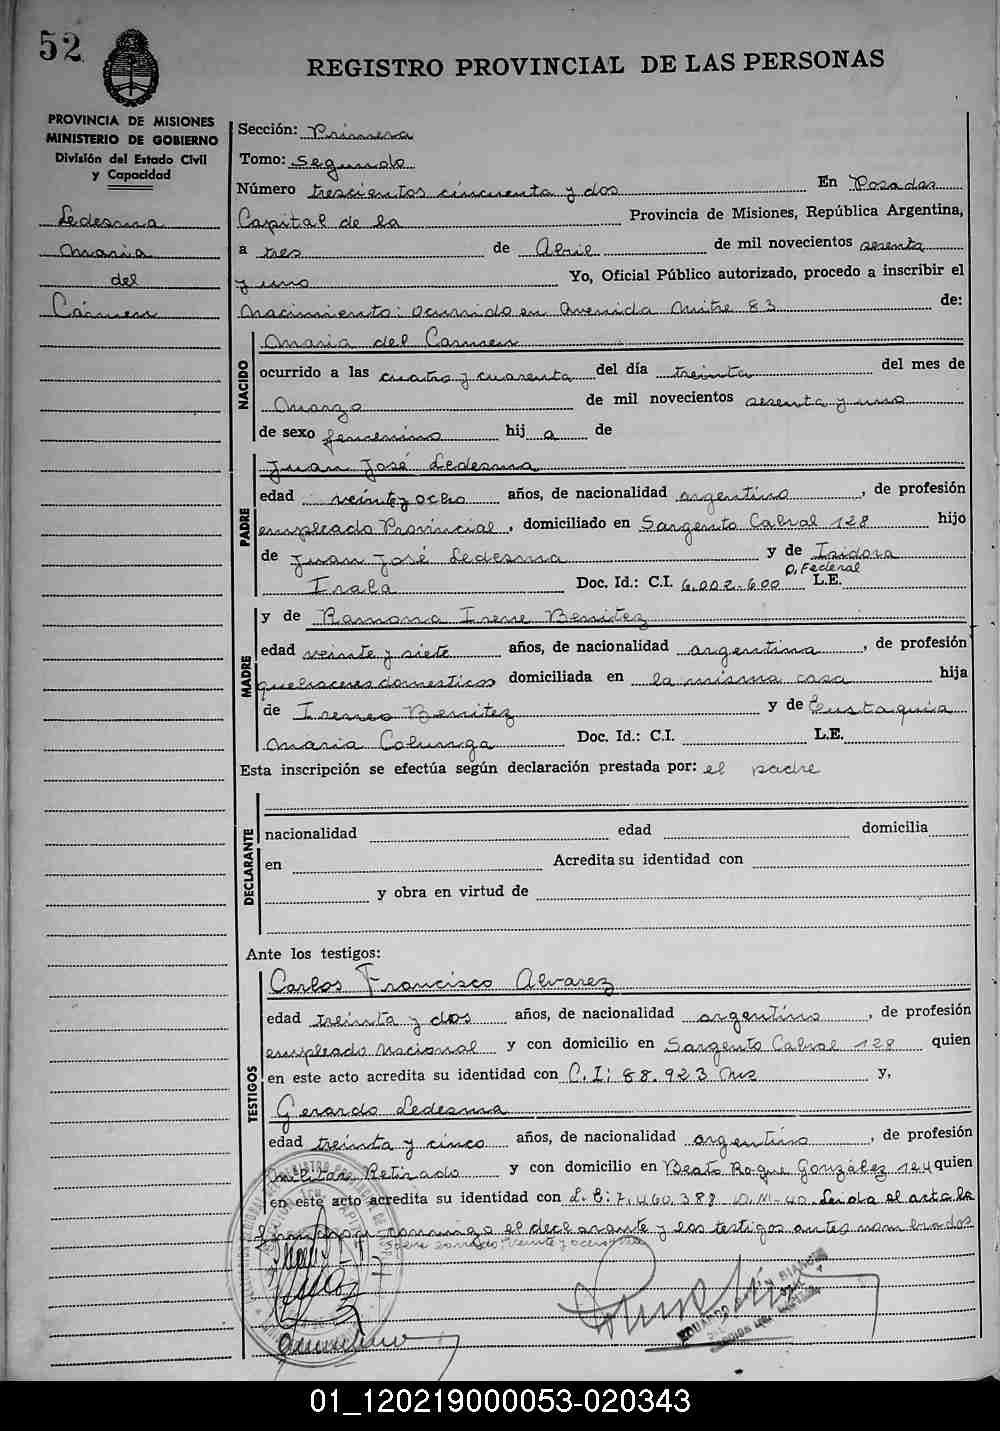 52
REGISTRO PROVINCIAL DE LAS PERSONAS
PROVINCIA DE MISIONES
MINISTERIO DE GOBIERNO
División del Estado Civil
y Capacidad
Ledesma
Maria
del
Cármen
Sección: Primera
Tomo: Segundo
Número trescientos cincuenta y dos En Posadas
Capital de la Provincia de Misiones, República Argentina,
a tres de Abril de mil novecientos sesenta
y uno Yo, Oficial Público autorizado, procedo a inscribir el
Nacimiento: ocurrido en Avenida Mitre 83 de:
NACIDO
Maria del Carmen
ocurrido a las cuatro y cuarenta del día treinta del mes de
Marzo de mil novecientos sesenta y uno
de sexo femenino hij a de
PADRE
Juan José Ledesma
edad veinte y ocho años, de nacionalidad argentino, de profesión
empleado Provincial, domiciliado en Sargento Cabral 128 hijo
de Juan José Ledesma y de Isidora
P. Federal
Irala Doc. Id.: C.I. 6.002.600 L.E.
MADRE
y de Ramona Irene Benitez
edad veinte y siete años, de nacionalidad argentina, de profesión
quehaceres domesticos domiciliada en la misma casa hija
de Ireneo Benitez y de Eustaquia
Maria Colunga Doc. Id.: C.I. L.E.
Esta inscripción se efectúa según declaración prestada por: el padre
DECLARANTE
nacionalidad edad domicilia
en Acredita su identidad con
y obra en virtud de
Ante los testigos:
TESTIGOS
Carlos Francisco Alvarez
edad treinta y dos años, de nacionalidad argentino, de profesión
empleado Nacional y con domicilio en Sargento Cabral 128 quien
en este acto acredita su identidad con C.I: 88.923 Mns y,
Gerardo Ledesma
edad treinta y cinco años, de nacionalidad argentino, de profesión
militar Retirado y con domicilio en Beato Roque González 124 quien
en este acto acredita su identidad con L.E: 7.460.388 D.M-40. Leida el acta la
firman conmigo el declarante y los testigos antes nombrados
01_120219000053-020343